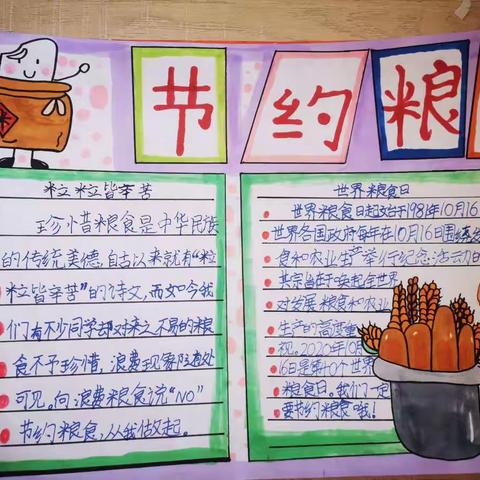 节约粮
米
粒粒皆辛苦
珍惜粮食是中华民族
的传统美德,自古以来就有“粒
粒皆辛苦”的诗文,而如今我
们有不少同学却对来之不易的粮
食不予珍惜,浪费现象随处
可见。向浪费粮食说“NO”
节约粮食,从我做起。
世界粮食日
世界粮食日起始于1981年10月16
世界各国政府每年在10月16日围绕发
食和农业生产举行纪念活动
其宗旨在于唤起全世界
对发展粮食和农业
生产的高度重
视。2020年10月
16日是第40个世界
粮食日。我们一定
要节约粮食哦!